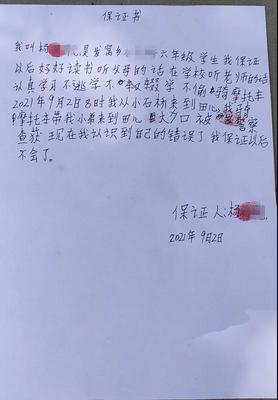 保证书
我叫杨 是 窝乡 六年级学生我保证
以后好好读书听父母的话在学校听老师的话
认真学习不逃学不 辍学不偷骑摩托车
2021年9月2日8时我从小石桥来到田心我骑
摩托车带我小弟来到田心 大刀口被 警察
查获 现在我认识到自己的错误了我保证以后
不会了。
保证人:杨
2021年9月2日